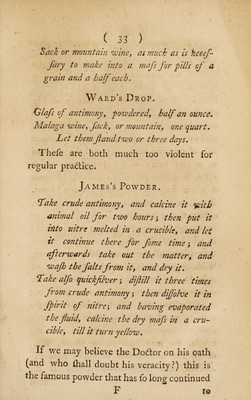 ( 33 )
Sack or mountain wine, as much as is neeeſ-
ſary to make into a maſs for pills of a
grain and a half each.
WARD'S DROP.
Glaſs of antimony, powdered, half an ounce.
Malaga wine, ſack, or mountain, one quart.
Let them ſtand two or three days.
Theſe are both much too violent for
regular practice.
JAMES'S POWDER.
Take crude antimony, and calcine it with
animal oil for two hours; then put it
into nitre melted in a crucible, and let
it continue there for ſome time; and
afterwards take out the matter, and
waſh the ſalts from it, and dry it.
Take alſo quickſilver; diſtill it three times
from crude antimony; then diſſolve it in
ſpirit of nitre; and having evaporated
the fluid, calcine the dry maſs in a cru-
cible, till it turn yellow.
If we may believe the Doctor on his oath
(and who ſhall doubt his veracity?) this is
the famous powder that has ſo long continued
F to